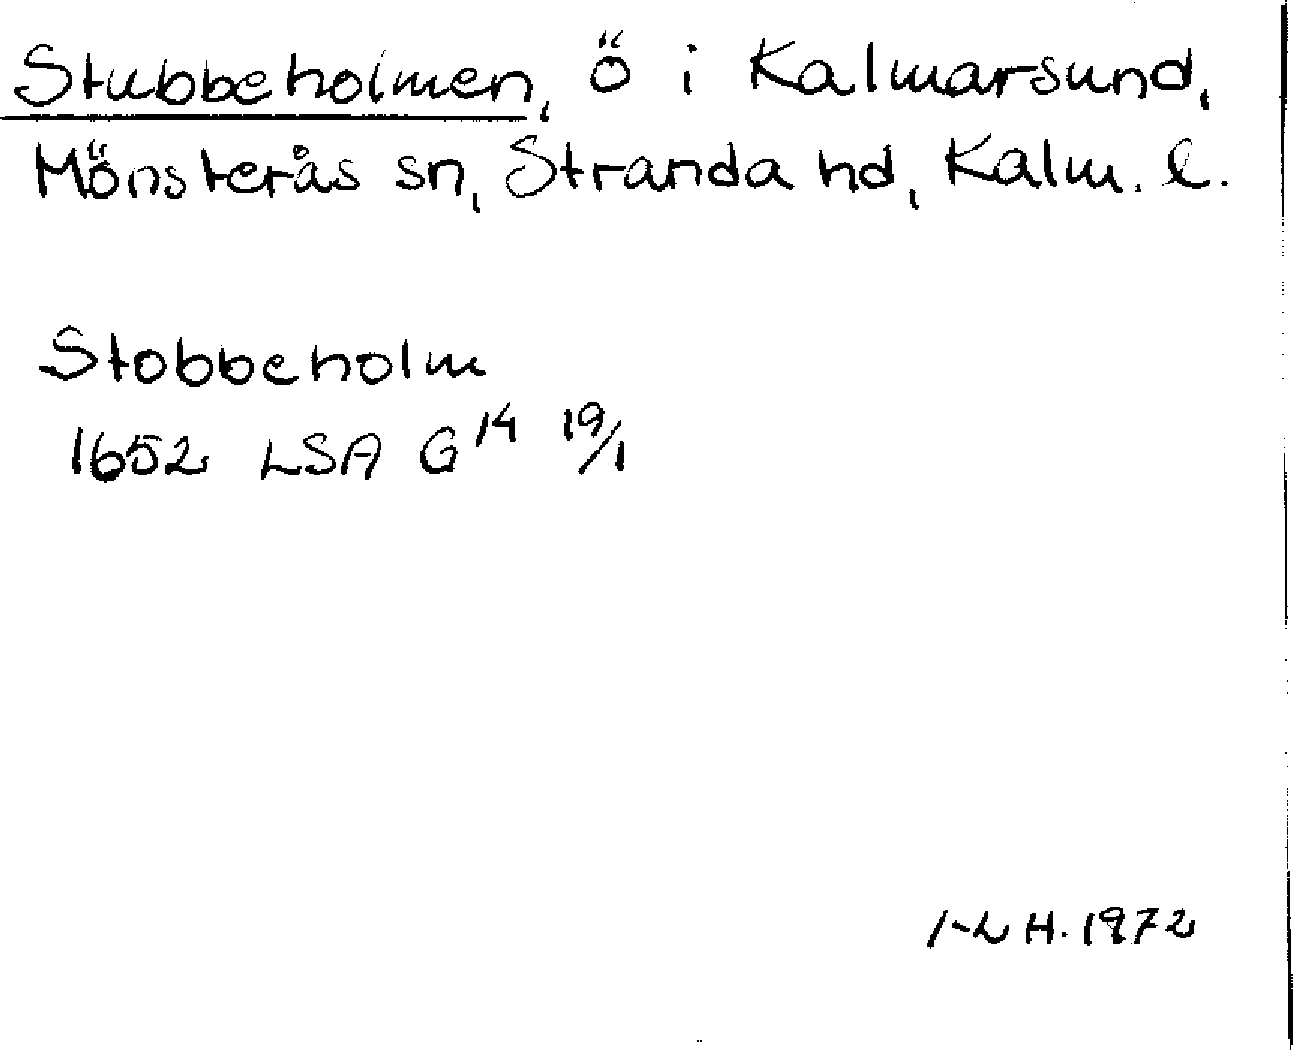 Stubbeholmen, ö i Kalmarsund,
Mönsterås sn, Stranda hd, Kalm. l.
Stobbeholm
1652 LSA G 14 19/1
I-L H. 1972